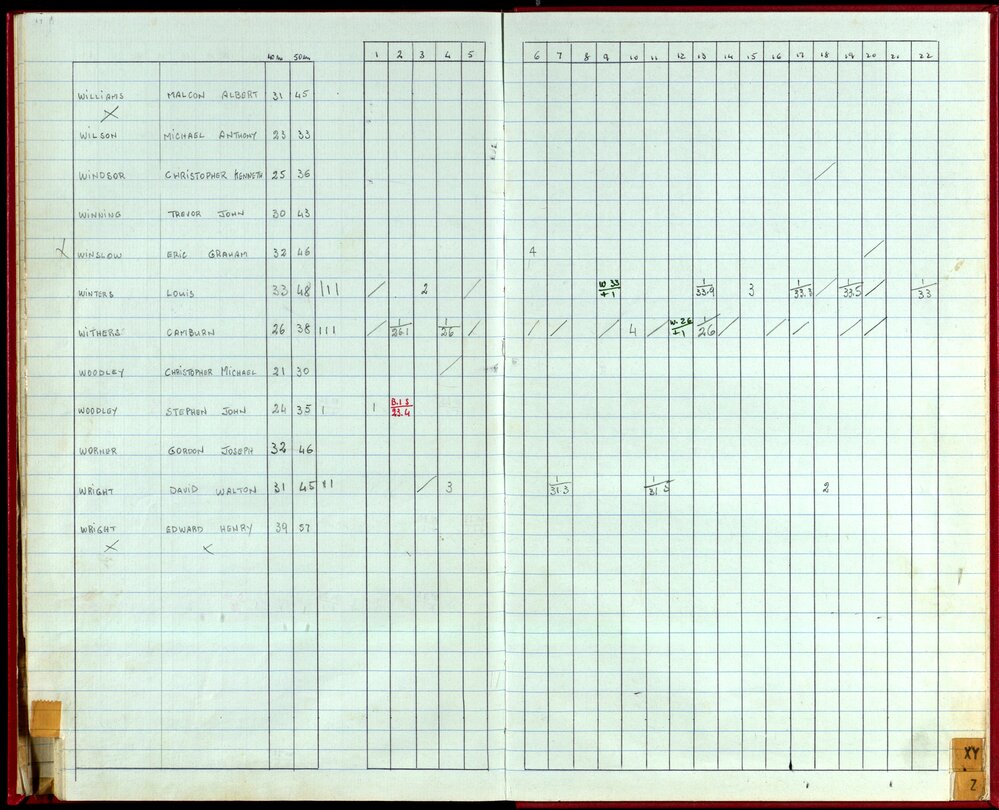 1 2 3 4 5 6 7 8 9 10 11 12 13 14 15 16 17 18 19 20 21 22
40m 50m
WILLIAMS MALCON ALBERT 31 45
X
WILSON MICHAEL ANTHONY 23 33
WINDSOR CHRISTOPHER KENNETH 25 36 /
WINNING TREVOR JOHN 30 43
X WINSLOW ERIC GRAHAM 32 46 4 /
WINTERS LOUIS 33 48 III / 2 / W 33 +1 1/33.9 3 1/33.3 / 1/33.5 / 1/33
WITHERS CAMBURN 26 38 III / 1/26.1 1/26 / / / / 4 / W. 26 +1 1/26 / / / / /
WOODLEY CHRISTOPHER MICHAEL 21 30 /
WOODLEY STEPHEN JOHN 24 35 I 1 B.1 S 23.4
WORNER GORDON JOSEPH 32 46
WRIGHT DAVID WALTON 31 45 II / 3 1/31.3 1/31.5 2
WRIGHT EDWARD HENRY 39 57
X X
XY
Z